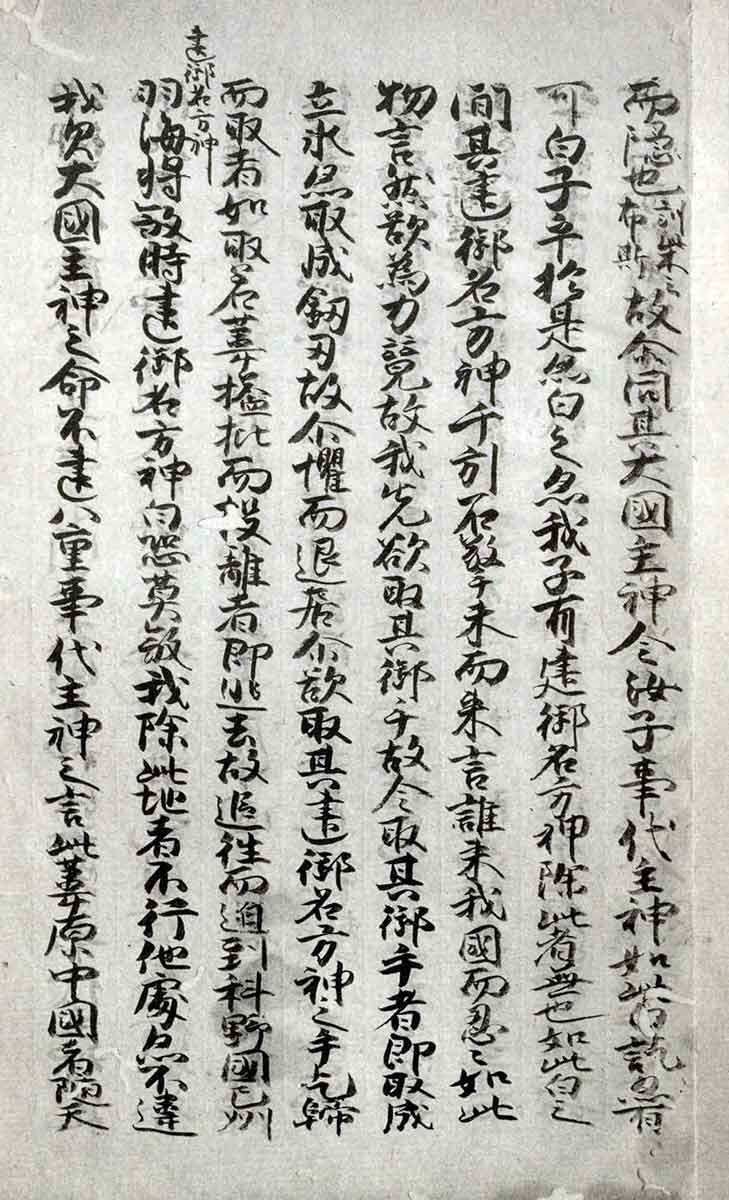 而隠也訓柴云布斯故尒問其大國主神今汝子事代主神如此白訖亦有
可白子乎於是亦白之亦我子有建御名方神除此者無也如此白之
間其建御名方神千引石擎手末而来言誰来我國而忍〻如此
物言然欲為力競故我先欲取其御手故令取其御手者即取成
立氷亦取成釼刃故尒懼而退居尒欲取其建御名方神之手乞歸
而取者如取若葦搤批而投離者即逃去故追往而迫到科野國之州
建御名方神
羽海将殺時建御名方神白恐莫殺我除此地者不行他處亦不違
我父大國主神之命不違八重事代主神之言此葦原中國者隨天